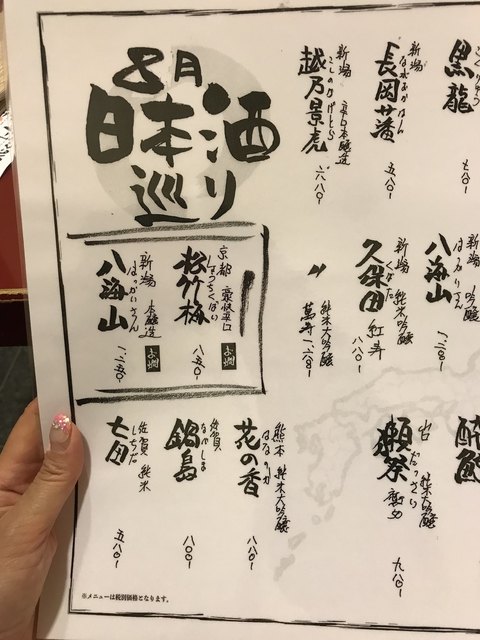 8月
日本酒
巡り
こくりゅう
黒龍
七八〇ー
新潟
ながおかはん
長岡藩
五八〇ー
新潟 辛口本醸造
こしのかげとら
越乃景虎
六八〇ー
新潟 吟醸
はっかいさん
八海山
新潟 純米吟醸
くぼた
久保田 紅寿
八八〇ー
〃
純米大吟醸
萬寿
京都 豪快辛口
しょうちくばい
松竹梅
お燗
八五〇ー
新潟 本醸造
はっかいさん
八海山
お燗
一二五〇ー
純米大吟醸
だっさい
獺祭
九八〇ー
熊本 純米大吟醸
はなのか
花の香
八八〇ー
佐賀
なべしま
鍋島
八〇〇ー
佐賀 純米
しちだ
七田
五八〇ー
※メニューは税別価格となります。